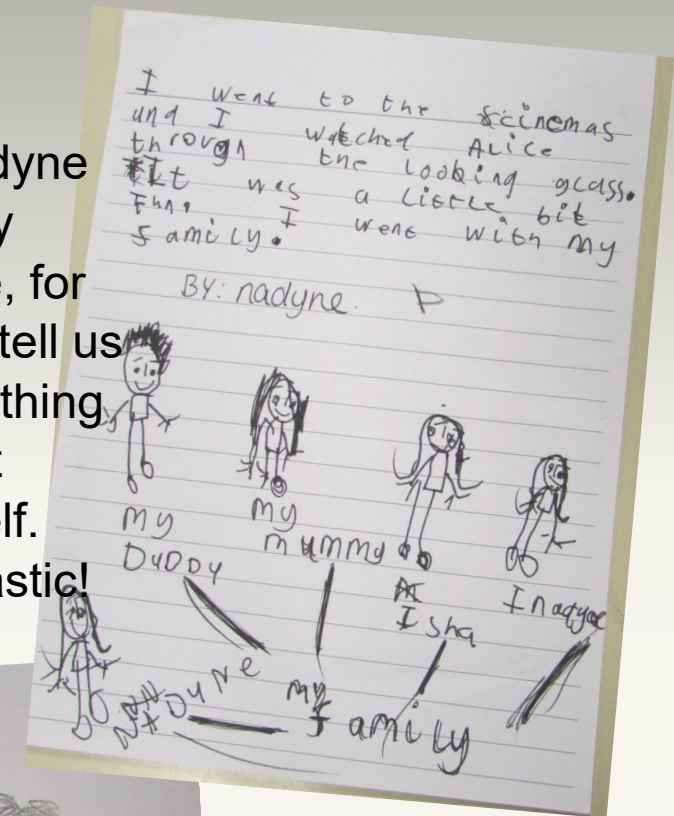 dyne
y
, for
tell us
thing
t
lf.
astic!
I went to the scinemas
and I watched ALice
through the looking glass.
It was a little bit
Fun. I went with my
family.
BY: nadyne.
my
DaDDy
my
mummy
Isha
NADyNe
my
family